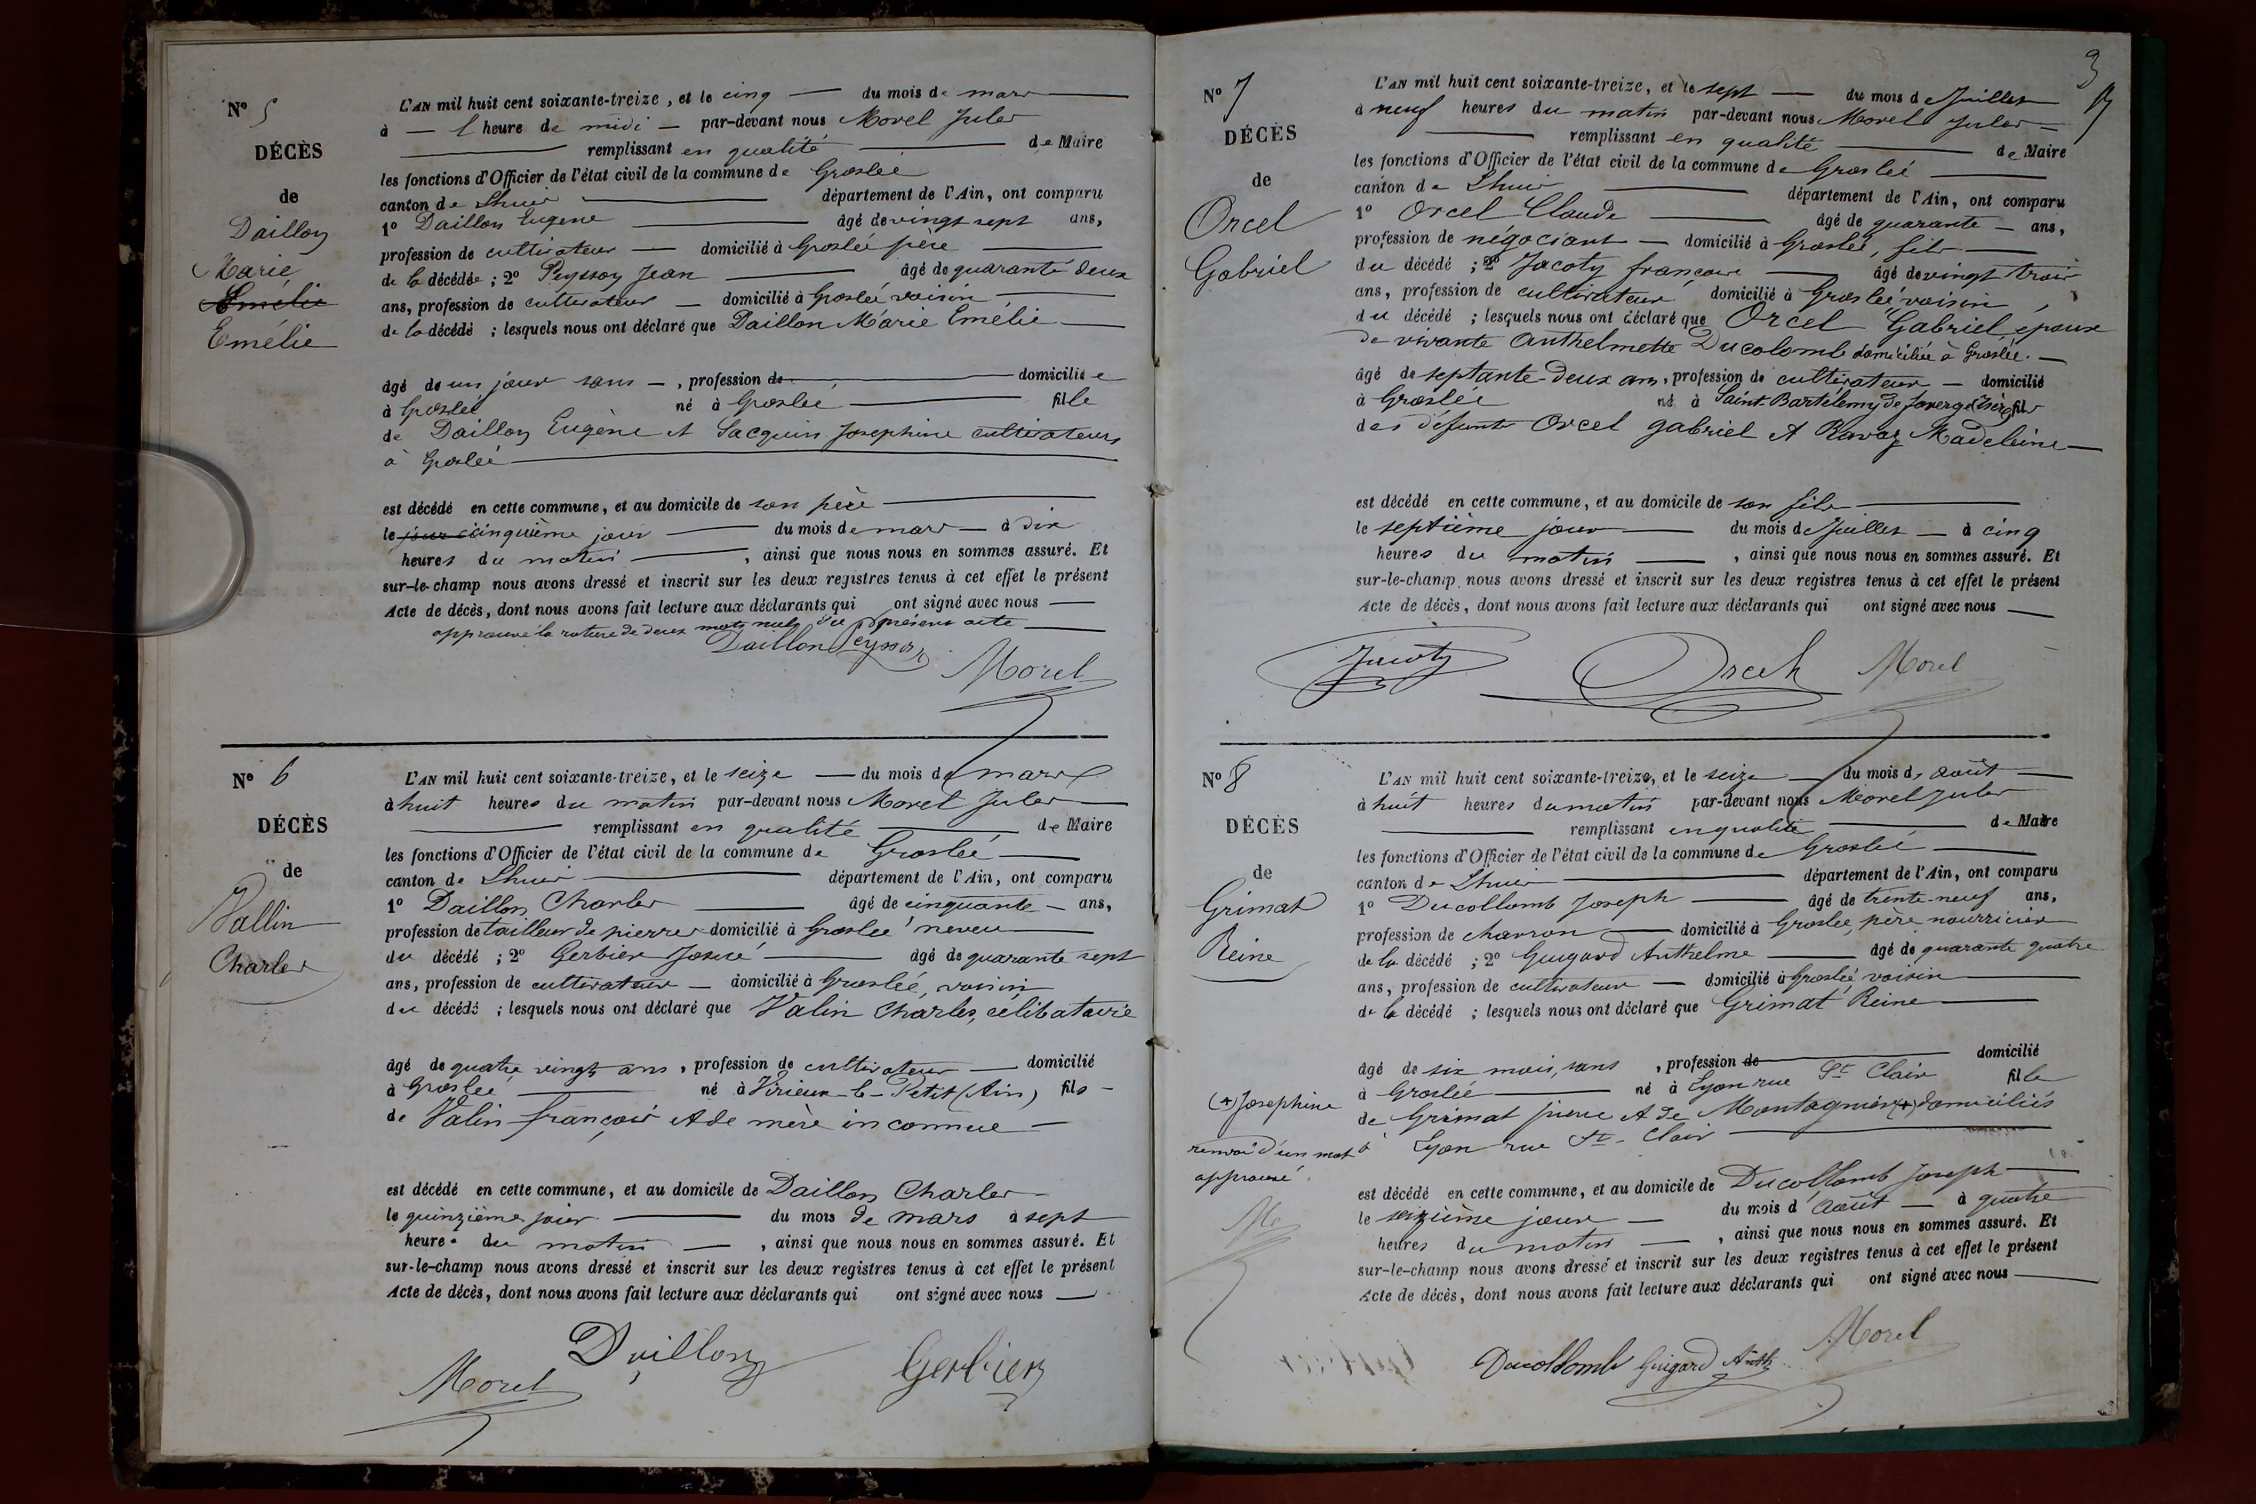 N° 5
DÉCÈS
de
Daillon
Marie
Emélie
Emélie
L'AN mil huit cent soixante-treize, et le cinq — du mois de mars —
à — 1 heure de midi — par-devant nous Morel Jules
— remplissant en qualité — de Maire
les fonctions d'Officier de l'état civil de la commune de Groslée
canton de Lhuis — département de l'Ain, ont comparu
1° Daillon Eugène — âgé de vingt sept ans,
profession de cultivateur — domicilié à Groslée père —
de la décédée ; 2° Peysson Jean — âgé de quarante deux
ans, profession de cultivateur — domicilié à Groslée voisin —
de la décédé ; lesquels nous ont déclaré que Daillon Marie Emélie —
âgé de un jour sans — , profession de — domicilié e
à Groslée né à Groslée — fille
de Daillon Eugène et Sacquin Josephine cultivateurs
à Groslée —
est décédé en cette commune, et au domicile de son père —
le jour cinquième jour — du mois de mars — à dix
heures du matin — , ainsi que nous nous en sommes assuré. Et
sur-le-champ nous avons dressé et inscrit sur les deux registres tenus à cet effet le présent
Acte de décès, dont nous avons fait lecture aux déclarants qui ont signé avec nous —
approuvé la rature de deux mots nuls au présent acte —
Daillon Peysson
Morel
N° 6
DÉCÈS
de
Vallin
Charles
L'AN mil huit cent soixante-treize, et le seize — du mois de mars
à huit heures du matin par-devant nous Morel Jules —
— remplissant en qualité — de Maire
les fonctions d'Officier de l'état civil de la commune de Groslée —
canton de Lhuis — département de l'Ain, ont comparu
1° Daillon Charles — âgé de cinquante — ans,
profession de tailleur de pierres domicilié à Groslée neveu —
du décédé ; 2° Gerbier Josué — âgé de quarante sept
ans, profession de cultivateur — domicilié à Groslée, voisin
du décédé ; lesquels nous ont déclaré que Valin Charles, célibataire
âgé de quatre vingts ans , profession de cultivateur — domicilié
à Groslée — né à Virieu-le-Petit (Ain) fils —
de Valin françois et de mère inconnue —
est décédé en cette commune, et au domicile de Daillon Charles —
le quinzième jour — du mois de mars à sept
heures du matin — , ainsi que nous nous en sommes assuré. Et
sur-le-champ nous avons dressé et inscrit sur les deux registres tenus à cet effet le présent
Acte de décès, dont nous avons fait lecture aux déclarants qui ont signé avec nous —
Daillon
Morel Gerbier
3
N° 7
DÉCÈS
de
Orcel
Gabriel
L'AN mil huit cent soixante-treize, et le sept — du mois de Juillet
à neuf heures du matin par-devant nous Morel Jules —
— remplissant en qualité — de Maire
les fonctions d'Officier de l'état civil de la commune de Groslée —
canton de Lhuis — département de l'Ain, ont comparu
1° Orcel Claude — âgé de quarante — ans,
profession de négociant — domicilié à Groslée, fils —
du décédé ; 2° Jacoty françois — âgé de vingt trois
ans, profession de cultivateur domicilié à Groslée voisin
du décédé ; lesquels nous ont déclaré que Orcel Gabriel, époux
de vivante Anthelmette Ducolomb domiciliée à Groslée. —
âgé de septante-deux ans, profession de cultivateur — domicilié
à Groslée né à Saint-Bartélemy de (Isère) fils
des défunts Orcel gabriel et Ravaz Madeleine —
est décédé en cette commune, et au domicile de son fils —
le septième jour — du mois de Juillet — à cinq
heures du matin — , ainsi que nous nous en sommes assuré. Et
sur-le-champ nous avons dressé et inscrit sur les deux registres tenus à cet effet le présent
Acte de décès, dont nous avons fait lecture aux déclarants qui ont signé avec nous —
Jacoty Orcel Morel
N° 8
DÉCÈS
de
Grimat
Reine
L'AN mil huit cent soixante-treize, et le seize — du mois d'août —
à huit heures du matin par-devant nous Morel Jules
— remplissant en qualité — de Maire
les fonctions d'Officier de l'état civil de la commune de Groslée —
canton de Lhuis — département de l'Ain, ont comparu
1° Ducollomb Joseph — âgé de trente-neuf ans,
profession de charron — domicilié à Groslée, père nourricier
de la décédé ; 2° Guigard Anthelme — âgé de quarante quatre
ans, profession de cultivateur — domicilié à Groslée, voisin —
de la décédé ; lesquels nous ont déclaré que Grimat Reine —
âgé de six mois, sans , profession de — domicilié
à Groslée — né à Lyon rue St Clair fille
de Grimat pierre et de Montagnier (+) domiciliés
à Lyon rue St-Clair —
(+) Josephine
renvoi d'un mot
approuvé
Mo
est décédé en cette commune, et au domicile de Ducollomb Joseph —
le seizième jour — du mois d'août — à quatre
heures du matin — , ainsi que nous nous en sommes assuré. Et
sur-le-champ nous avons dressé et inscrit sur les deux registres tenus à cet effet le présent
Acte de décès, dont nous avons fait lecture aux déclarants qui ont signé avec nous —
Ducollomb Guigard Anth Morel